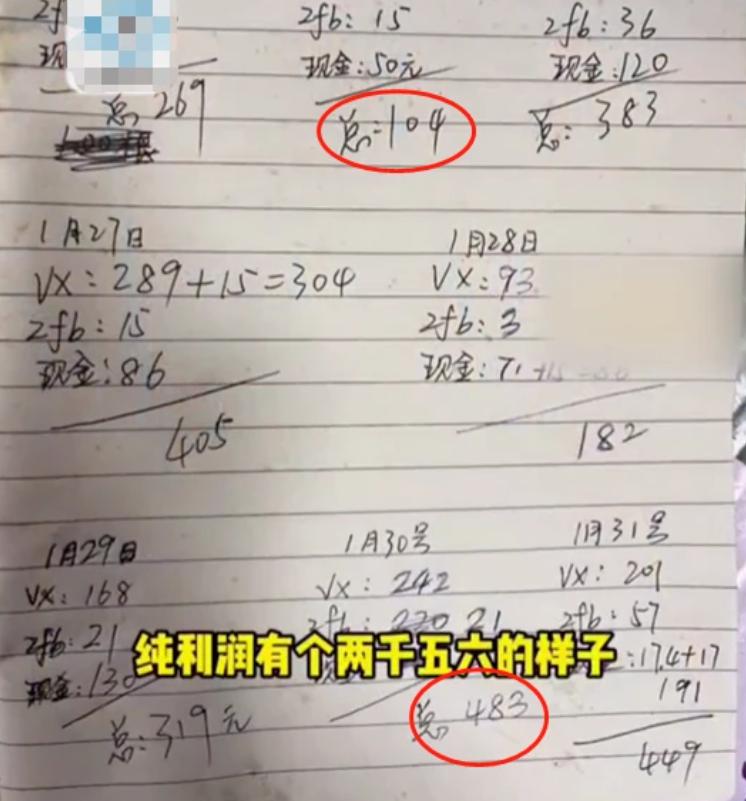 2f
现
总 269
2fb: 15
现金:50元
总:104
2fb:36
现金:120
总: 383
1月27日
VX:289+15=304
2fb:15
现金:86
405
1月28日
VX:93
2fb:3
现金:71+15=86
182
1月29日
VX:168
2fb:21
现金:130
总:319元
1月30号
VX:242
2fb: 21
总 483
1月31号
VX:201
2fb:57
:174+17
191
449
纯利润有个两千五六的样子